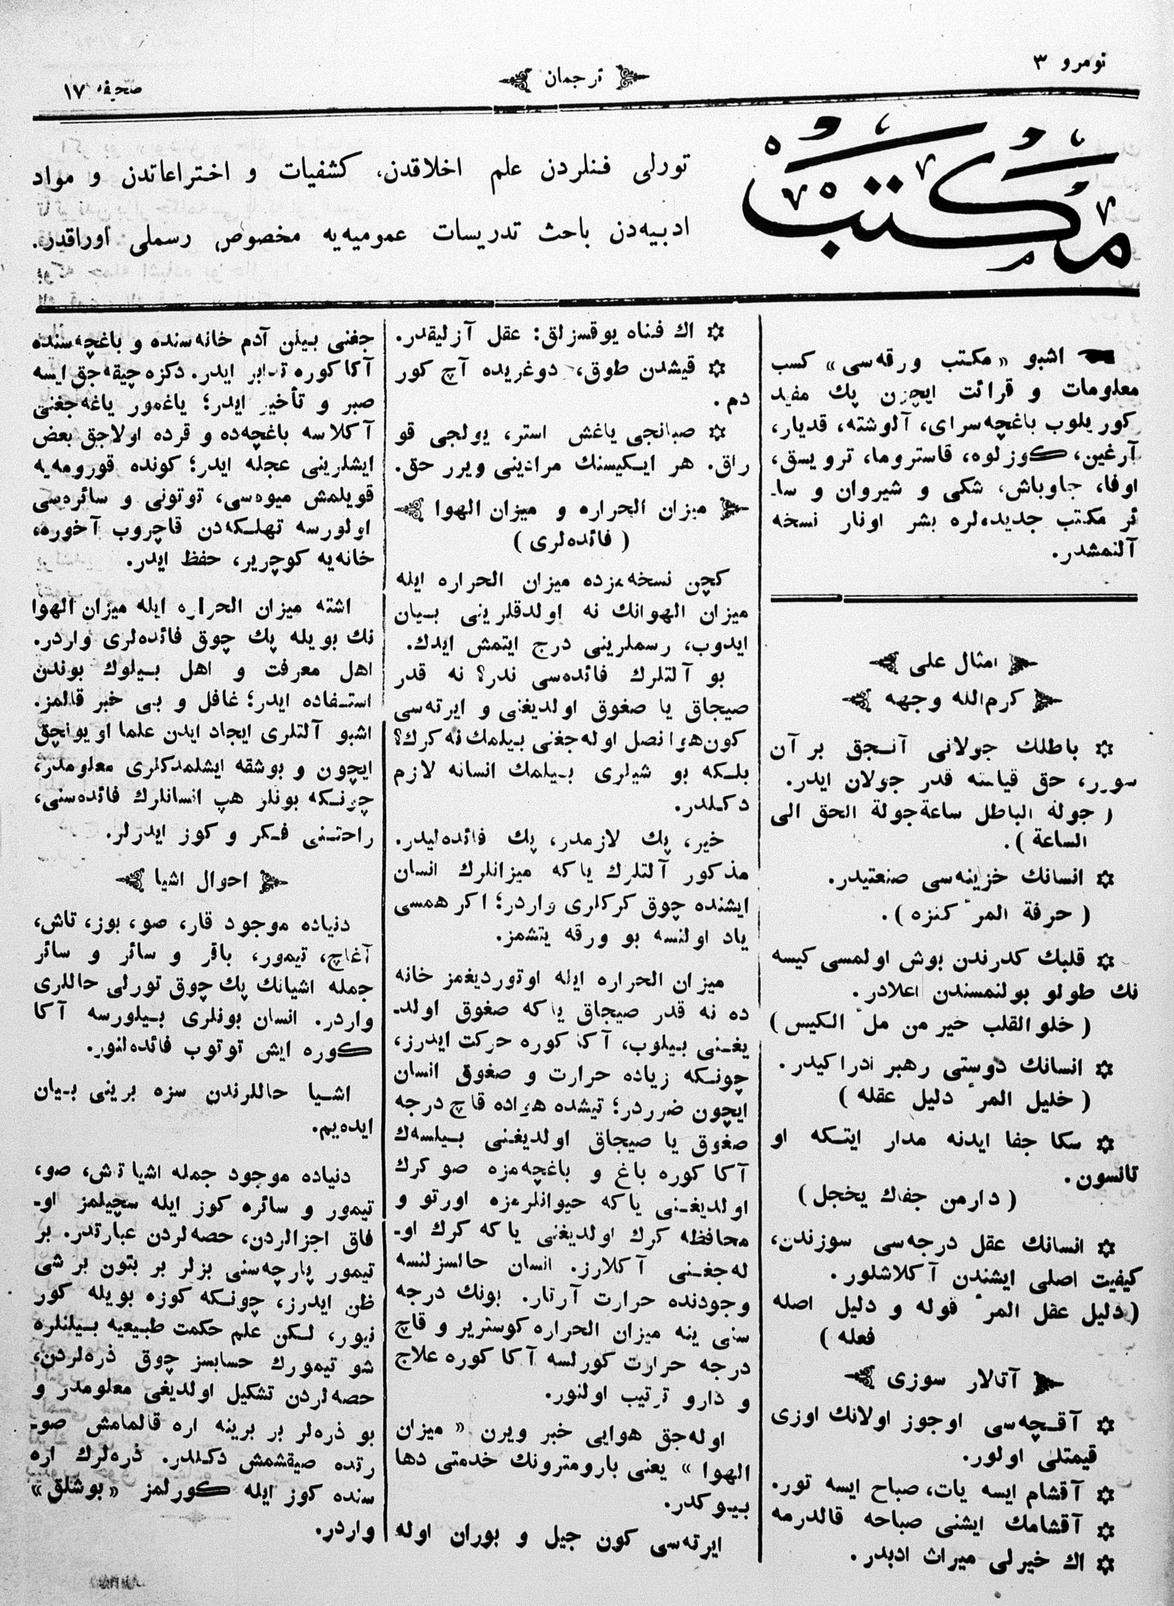 نومرو ٣
ترجمان
صحیفه ١٧
مكتب
تورلی فنلردن علم اخلاقدن، كشفیات و اختراعاتدن و مواد
ادبیه‌دن باحث تدریسات عمومیه‌یه مخصوص رسملی اوراقدر.
اشبو «مكتب ورقه‌سی» كسب
معلومات و قرائت ایچون پك مفید
كوریلوب باغچه‌سرای، آلوشته، قدیار،
آرغین، كوزلوه، قاستروما، ترویسق،
اوفا، جاوباش، شكی و شیروان و سا‍ـ
ئر مكتب جدیده‌لره بشر اونار نسخه
آلنمشدر.
امثال علی
كرم‌الله وجهه
۞ باطلك جولانی آنجق بر آن
سورر، حق قیامته قدر جولان ایدر.
( جولة الباطل ساعة جولة الحق الی
الساعة ).
۞ انسانك خزینه‌سی صنعتیدر.
( حرفة المرء كنزه ).
۞ قلبك كدرندن بوش اولمسی كیسه
نك طولو بولنمسندن اعلادر.
( خلو القلب خیر من ملء الكیس )
۞ انسانك دوستی رهبر ادراكیدر.
( خلیل المرء دلیل عقله )
۞ سكا جفا ایدنه مدار ایتكه او
تانسون.
( دارمن جفاك یخجل )
۞ انسانك عقل درجه‌سی سوزندن،
كیفیت اصلی ایشندن آكلاشلور.
( دلیل عقل المرء قوله و دلیل اصله
فعله )
آتالار سوزی
۞ آقچه‌سی اوجوز اولانك اوزی
قیمتلی اولور.
۞ آقشام ایسه یات، صباح ایسه تور.
۞ آقشامك ایشنی صباحه قالدرمه
۞ اك خیرلی میراث ادبدر.
۞ اك فناه یوقسزلق: عقل آزلیقدر.
۞ قیشدن طوق، دوغریده آچ كور
دم.
۞ صبانجی یاغش استر، یولجی قو
راق. هر ایكیسنك مرادینی ویرر حق.
میزان الحراره و میزان الهوا
( فائده‌لری )
كچن نسخه‌مزده میزان الحراره ایله
میزان الهوانك نه اولدقلرینی بیان
ایدوب، رسملرینی درج ایتمش ایدك.
بو آلتلرك فائده‌سی ندر؟ نه قدر
صیجاق یا صغوق اولدیغنی و ایرته‌سی
كون هوا نصل اوله‌جغنی بیلمك نه كرك؟
بلكه بو شیلری بیلمك انسانه لازم
دكلدر.
خیر، پك لازمدر، پك فائده‌لیدر.
مذكور آلتلرك یاكه میزانلرك انسان
ایشنده چوق كركلری واردر؛ اكر همسی
یاد اولنسه بو ورقه یتشمز.
میزان الحراره ایله اوتوردیغمز خانه
ده نه قدر صیجاق یاكه صغوق اولد‍ـ
یغنی بیلوب، آكا كوره حركت ایدرز،
چونكه زیاده حرارت و صغوق انسان
ایچون ضرردر؛ تیشده هواده قاچ درجه
صغوق یا صیجاق اولدیغنی بیلسه‌ك
آكا كوره باغ و باغچه‌مزه صو كرك
اولدیغنی یاكه حیوانلرمزه اورتو و
محافظه كرك اولدیغنی یاكه كرك او‍ـ
له‌جغنی آكلارز. انسان حالسزلنسه
وجودنده حرارت آرتار. بونك درجه
سنی ینه میزان الحراره كوستریر و قاچ
درجه حرارت كورلسه آكا كوره علاج
و دارو ترتیب اولنور.
اوله‌جق هوایی خبر ویرن « میزان
الهوا » یعنی بارومترونك خدمتی دها
بیوكدر.
ایرته‌سی كون جیل و بوران اوله
جغنی بیلن آدم خانه‌سنده و باغچه‌سنده
آكا كوره تدابر ایدر. دكزه چیقه‌جق ایسه
صبر و تأخیر ایدر؛ یاغمور یاغه‌جغنی
آكلاسه باغچه‌ده و قرده اولاجق بعض
ایشلرینی عجله ایدر؛ كونده قورومه‌یه
قویلمش میوه‌سی، توتونی و سائره‌سی
اولورسه تهلكه‌دن قاچروب آخوره،
خانه‌یه كوچریر، حفظ ایدر.
اشته میزان الحراره ایله میزان الهوا
نك بویله پك چوق فائده‌لری واردر.
اهل معرفت و اهل بیلوك بوندن
استفاده ایدر؛ غافل و بی خبر قالمز.
اشبو آلتلری ایجاد ایدن علما اویونچق
ایچون و بوشقه ایشلمدكلری معلومدر،
چونكه بونلر هپ انسانلرك فائده‌سنی،
راحتنی فكر و كوز ایدرلر.
احوال اشیا
دنیاده موجود قار، صو، بوز، تاش،
آغاچ، تیمور، باقر و سائر و سائر
جمله اشیانك پك چوق تورلی حاللری
واردر. انسان بونلری بیلورسه آكا
كوره ایش توتوب فائده‌لنور.
اشیا حاللرندن سزه برینی بیان
ایده‌یم.
دنیاده موجود جمله اشیا تاش، صو،
تیمور و سائره كوز ایله سچیلمز او‍ـ
فاق اجزالردن، حصه‌لردن عبارتدر. بر
تیمور پارچه‌سنی بزلر بر بتون بر شی
ظن ایدرز، چونكه كوزه بویله كور
نیور، لكن علم حكمت طبیعیه بیلنلره
شو تیمورك حسابسز چوق ذره‌لردن،
حصه‌لردن تشكیل اولدیغی معلومدر و
بو ذره‌لر بر برینه اره قالمامش صو‍ـ
رتده صیقشمش دكلدر. ذره‌لرك اره
سنده كوز ایله كورلمز «بوشلق»
واردر.